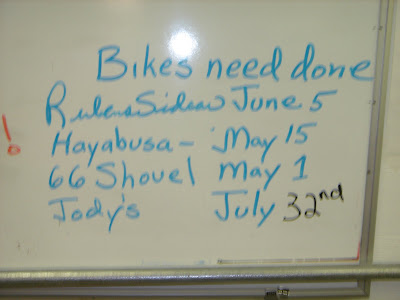 Bikes need done
Rubens Sidecar June 5
! Hayabusa - May 15
66 Shovel May 1
Jody's July 32nd